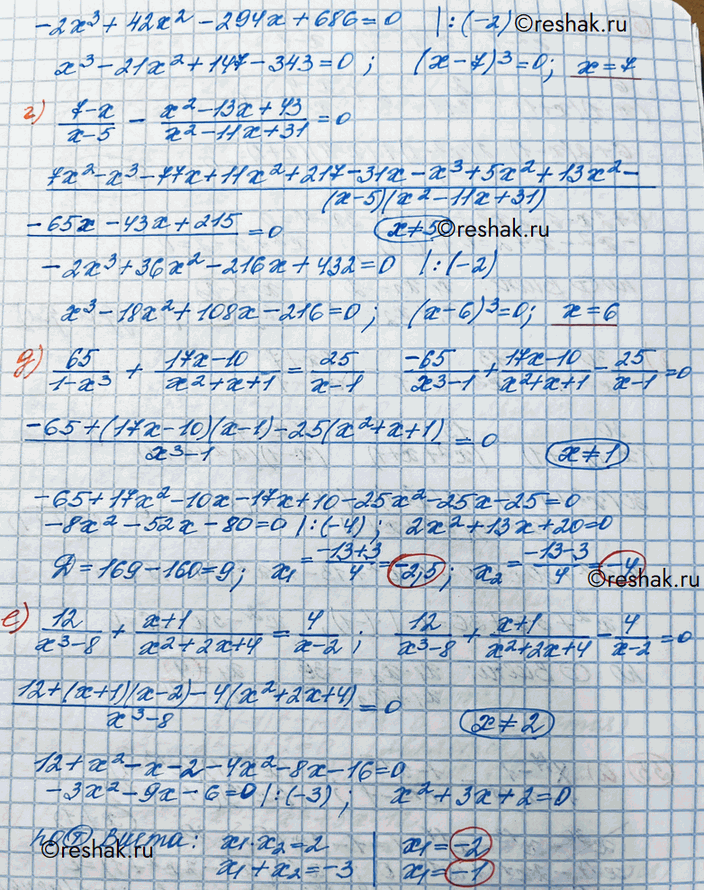 -2x³+42x²-294x+686=0 |:(-2) ©reshak.ru
x³-21x²+147-343=0; (x-7)³=0; x=7
г) (7-x)/(x-5) - (x²-13x+43)/(x²-11x+31)=0
(7x²-x³-77x+11x²+217-31x-x³+5x²+13x²-
(x-5)(x²-11x+31)
-65x-43x+215)/=0 x≠5 ©reshak.ru
-2x³+36x²-216x+432=0 |:(-2)
x³-18x²+108x-216=0; (x-6)³=0; x=6
д) 65/(1-x³) + (17x-10)/(x²+x+1) = 25/(x-1) -65/(x³-1)+(17x-10)/(x²+x+1)-25/(x-1)=0
(-65+(17x-10)(x-1)-25(x²+x+1))/(x³-1)=0 x≠1
-65+17x²-10x-17x+10-25x²-25x-25=0
-8x²-52x-80=0 |:(-4); 2x²+13x+20=0
D=169-160=9; x₁=(-13+3)/4=-2,5; x₂=(-13-3)/4=-4
©reshak.ru
е) 12/(x³-8)+(x+1)/(x²+2x+4)=4/(x-2); 12/(x³-8)+(x+1)/(x²+2x+4)-4/(x-2)=0
(12+(x+1)(x-2)-4(x²+2x+4))/(x³-8)=0 x≠2
12+x²-x-2-4x²-8x-16=0
-3x²-9x-6=0 |:(-3); x²+3x+2=0
по Т Виета: x₁·x₂=2 | x₁=-2
©reshak.ru x₁+x₂=-3 | x₁=-1